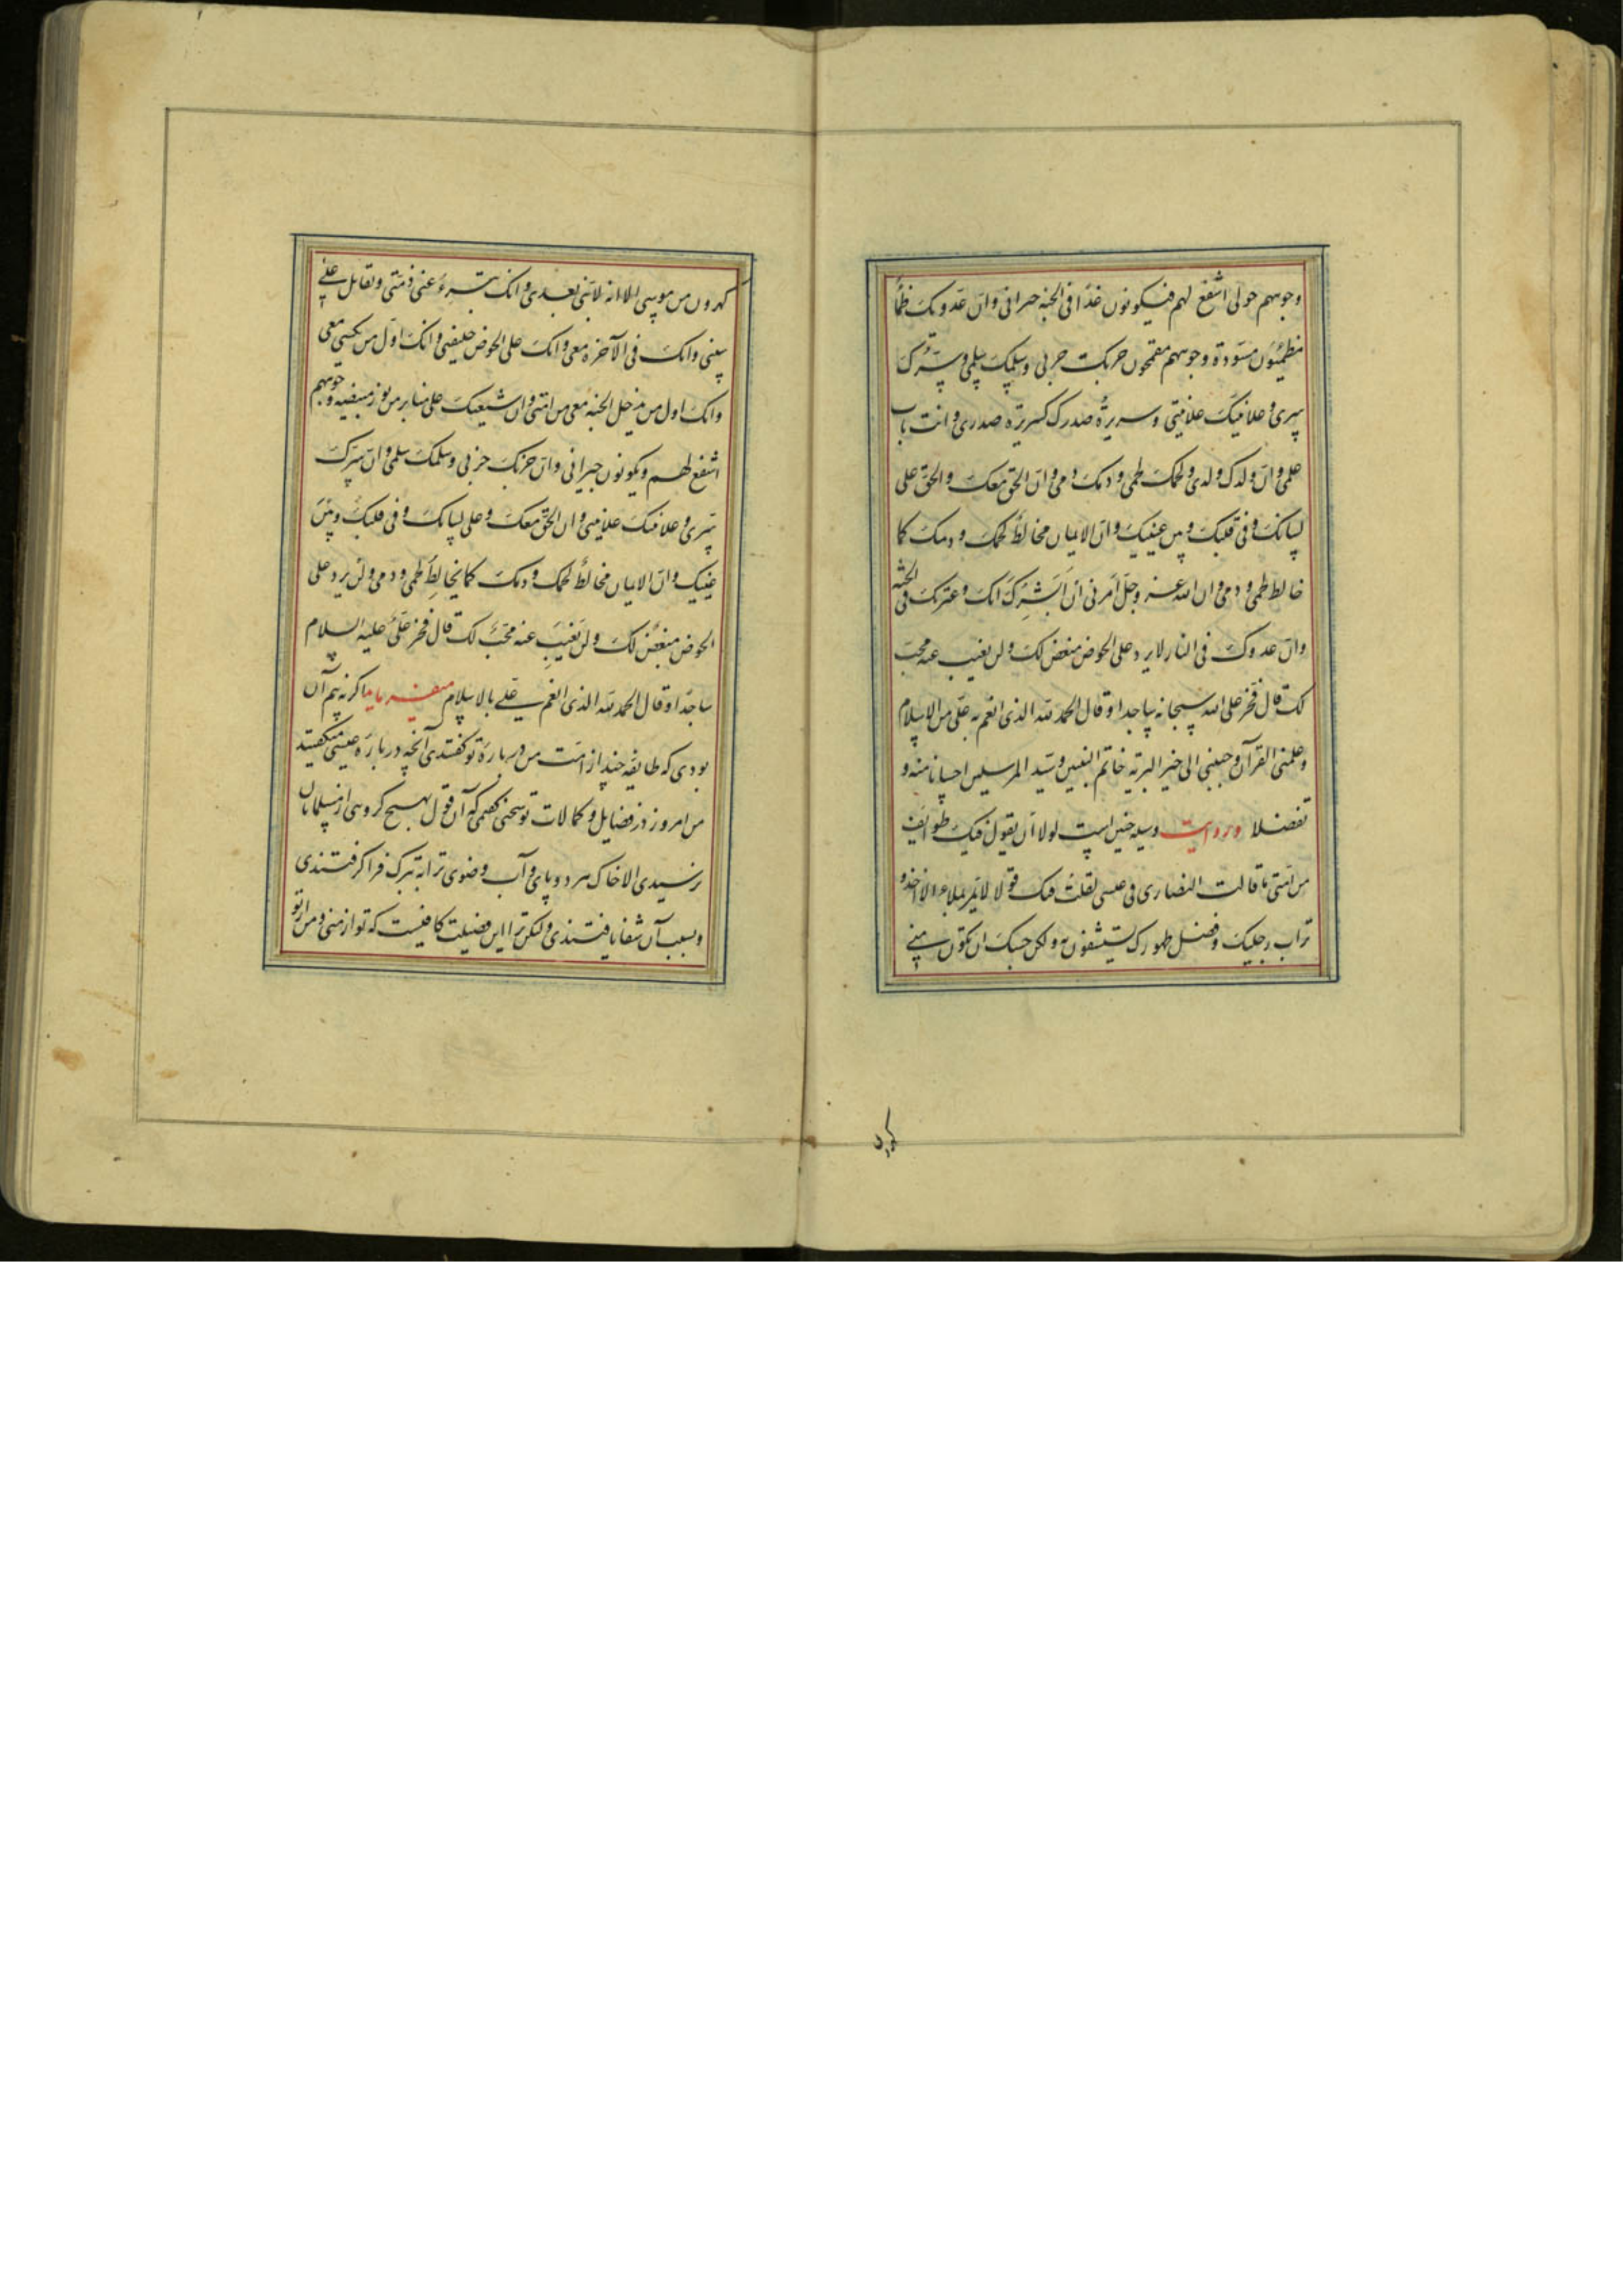 وجوههم حولی اشفع لهم فیکونون غدًا فی الجنه جیرانی وان عدوک ظمأ
مظمئون مسودة وجوههم مقمحون حربک حربی وسلمک سلمی وسرک
سری وعلانیتک علانیتی وسریرة صدرک کسریرة صدری وانت باب
علمی وان ولدک ولدی ولحمک لحمی ودمک دمی وان الحق معک والحق علی
لسانک وفی قلبک وبین عینیک وان الایمان مخالط لحمک ودمک کما
خالط لحمی ودمی وان الله عز وجل امرنی ان ابشرک انک وعترتک فی الجنة
وان عدوک فی النار لا یرد علی الحوض مبغض لک ولن یغیب عنه محب
لک قال فخر علی الله سبحانه ساجدا وقال الحمد لله الذی انعم به علی من الاسلام
وعلمنی القرآن وحببنی الی خیر البریه خاتم النبیین وسید المرسلین احسانا منه و
تفضلا ودر روایت وسیله چنین است لولا ان یقول فیک طوائف
من امتی ما قالت النصاری فی عیسی لقلت فیک قولا لا تمر بملاء الا اخذوا
تراب رجلیک وفضل طهورک یستشفون به ولکن حسبک ان تکون منی
کهرون
کهرون من موسی الا انه لا نبی بعدی وانک تبرء عنی ذمتی وتقاتل علی
سنتی وانک فی الآخرة معی وانک علی الحوض خلیفتی وانک اول من یکسی معی
وانک اول من یدخل الجنة معی من امتی وان شیعتک علی منابر من نور مبیضة وجوههم
اشفع لهم ویکونون جیرانی وان حربک حربی وسلمک سلمی وان سرک
سری وعلانیتک علانیتی وان الحق معک وعلی لسانک وفی قلبک وبین
عینیک وان الایمان مخالط لحمک ودمک کما یخالط لحمی ودمی ولن یرد علی
الحوض مبغض لک ولن یغیب عنه محب لک قال فخر علی علیه السلام
ساجدا وقال الحمد لله الذی انعم علی بالاسلام میفرماید اگر نه بیم آن
بودی که طایفه چند از امت من درباره تو گفتندی آنچه درباره عیسی میگفتند
من امروز در فضایل وکمالات تو سخنی گفتمی که آن قول بهیچ گروهی از مسلمانان
نرسیدی الا خاک هر دو پای وآب وضوی ترا به تبرک فرا گرفتندی
وبسبب آن شفا یافتندی ولکن ترا این فضیلت کافیست که تو از منی ومن از تو